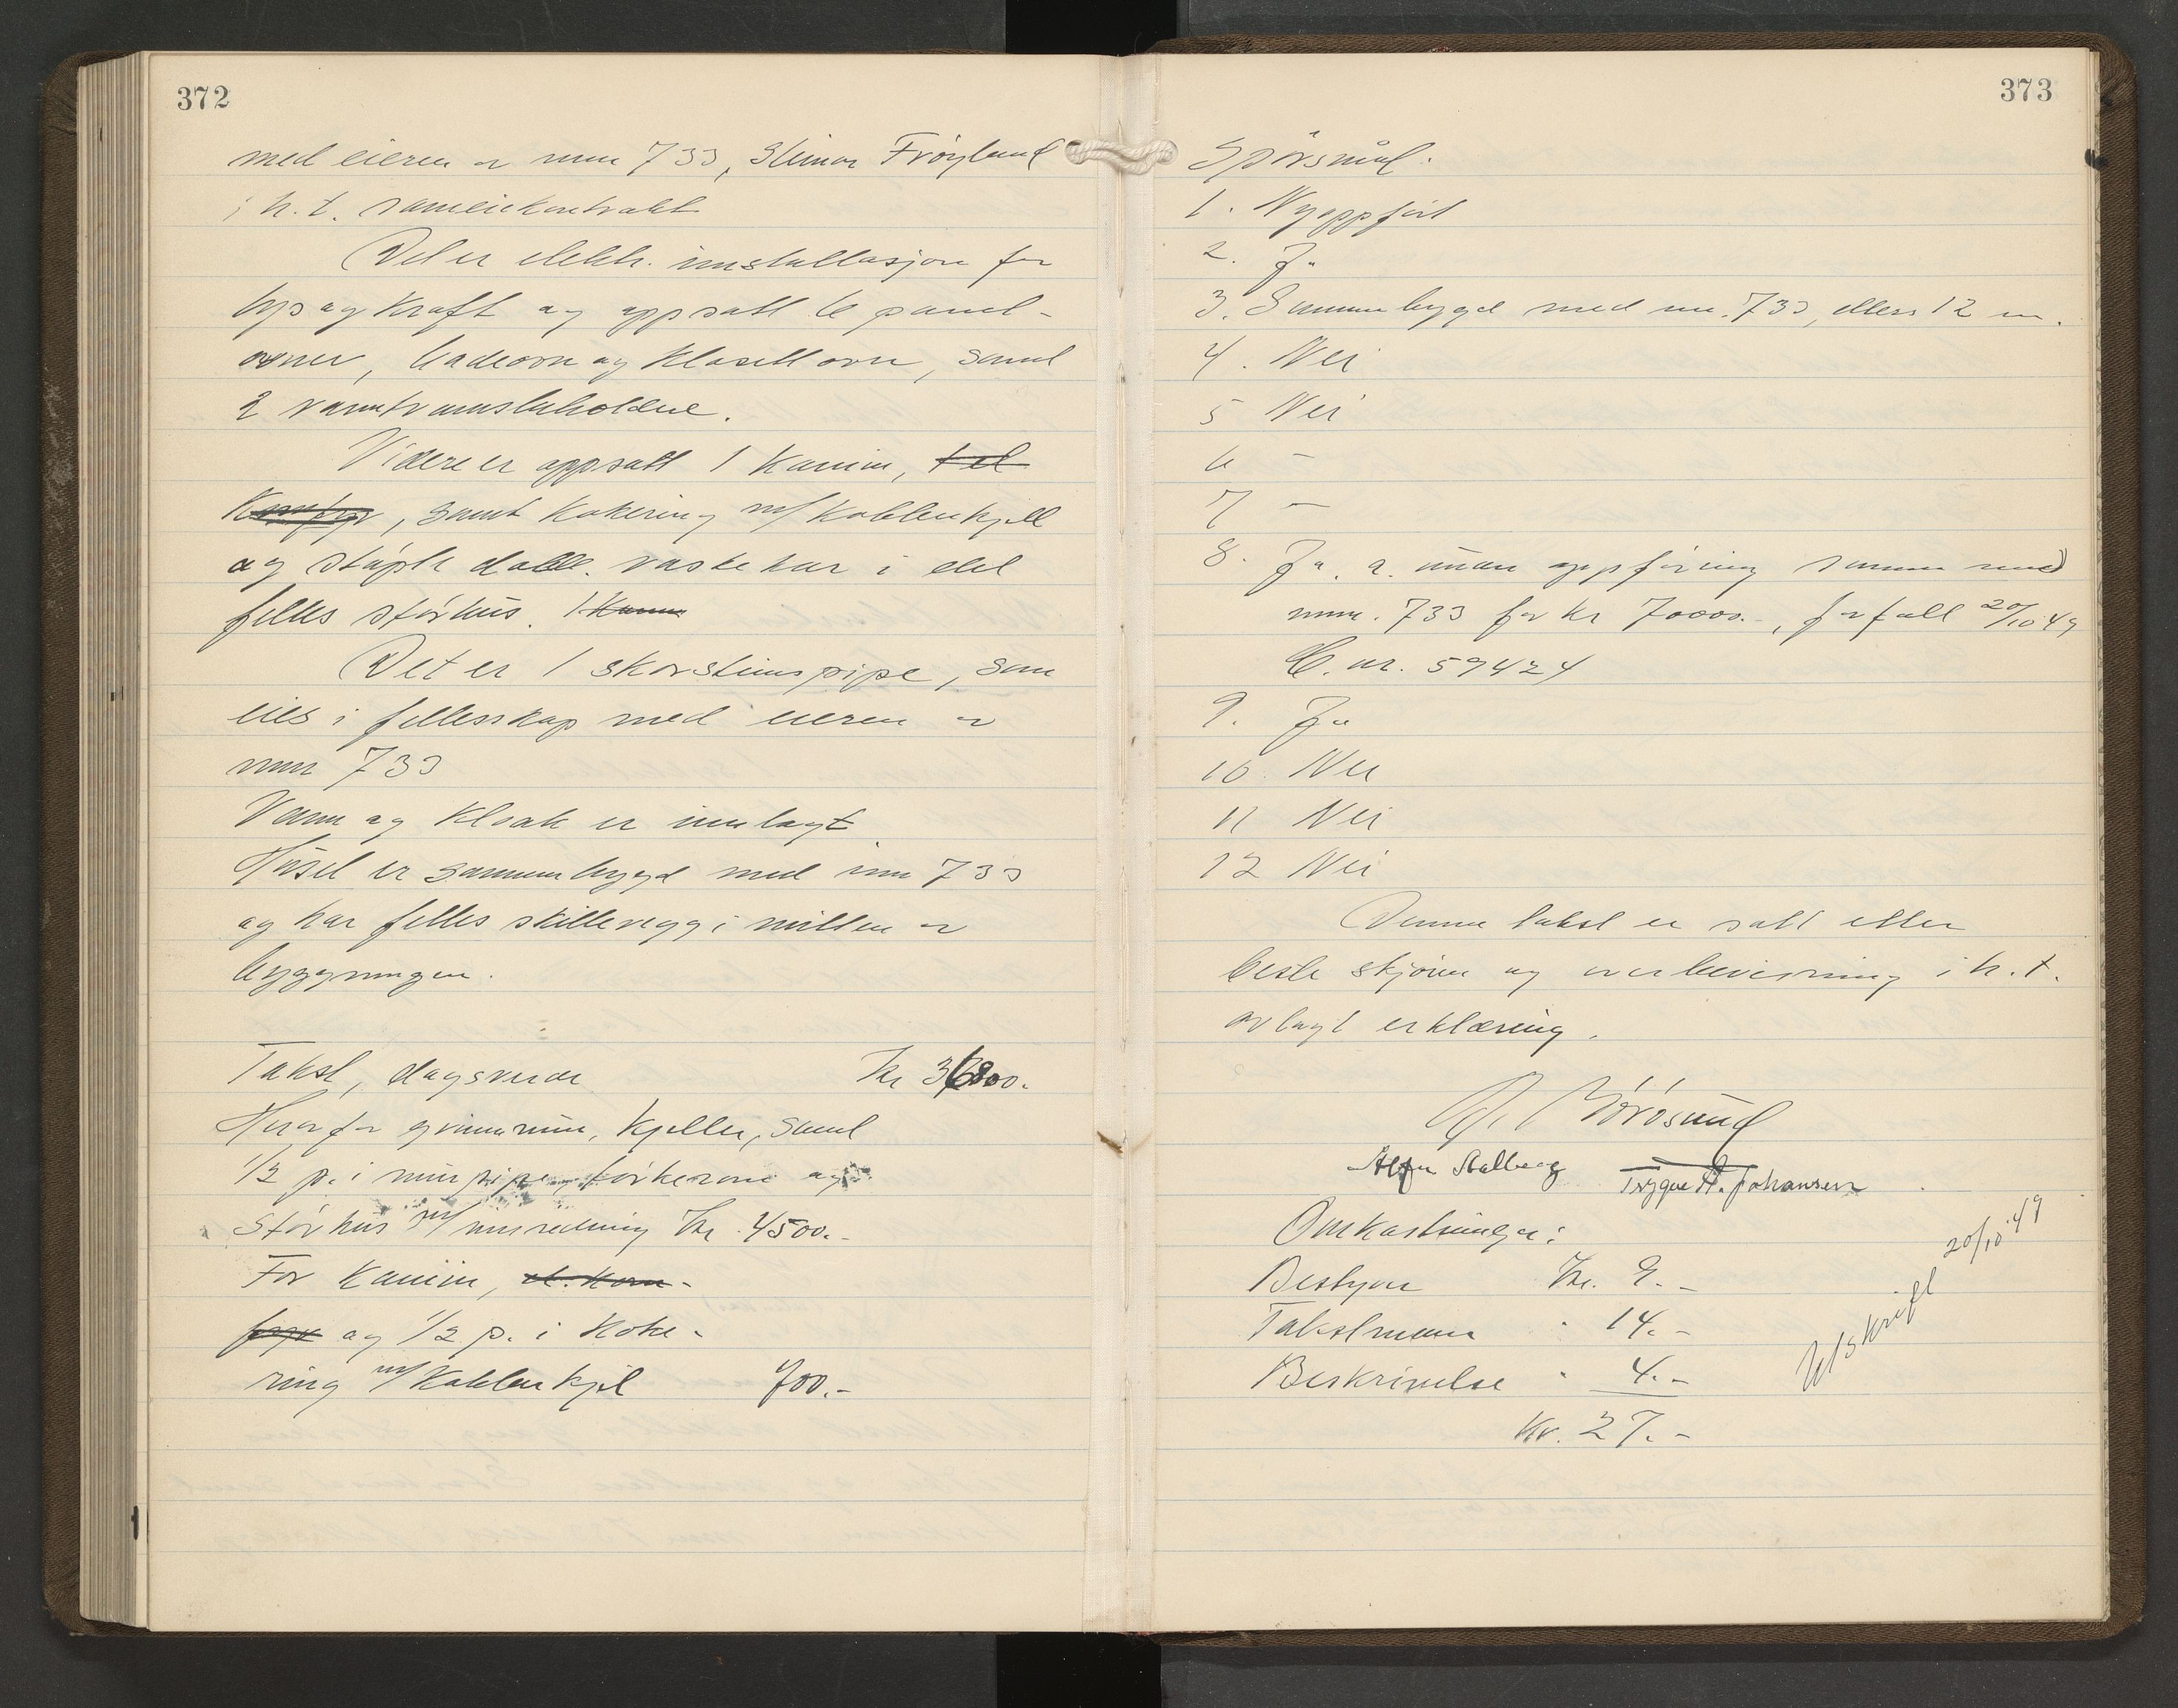 372
med eieren av mnr 733, Steinar Frøyland
i h. t. sameiekontrakt
Det er elektr. installasjon for
lys og kraft og oppsatt 6 panel-
ovner, badeovn og klosettovn, samt
2 varmtvannsbeholdere.
Videre er oppsatt 1 kamin, 1 el.
komfyr, samt kokering m/ kobberkjell
og støpte dobb. vaskekar i det
felles størhus. 1 kamin
Det er 1 skorsteinspipe, som
eies i fellesskap med eieren av
mnr 733
Vann og kloak er innlagt
Huset er sammenbygd med mnr 733
og har felles skillevegg i midten av
bygningen.
Takst, dagsverdi Kr 36800.
Herav for grunnmur, kjeller, samt
1/2 p. i murpipe, tørkerom og
størhus m/ innredning Kr. 4500.-
For kamin, el. kom-
fyr og 1/2 p. i koke-
ring m/ kobberkjel 700.-
373
Spørsmål.
1. Nyoppført
2. Ja
3. Sammenbygd med mnr. 733, ellers 12 m.
4. Nei
5 Nei
6 -
7 -
8. Ja, a. under oppføring sammen med
mnr. 733 for kr 70000.-, forfall 20/10 49
C. nr. 59424
9. Ja
10. Nei
11 Nei
12 Nei
Denne takst er satt etter
beste skjønn og overbevisning i h. t.
avlagt erklæring.
Sørøsund
Stalberg Trygve A. Johansen
Omkostninger:
Bestyrer Kr. 9.-
Takstmenn " 14.-
Beskrivelse " 4.-
Kr. 27.-
Utskrift 20/10 49